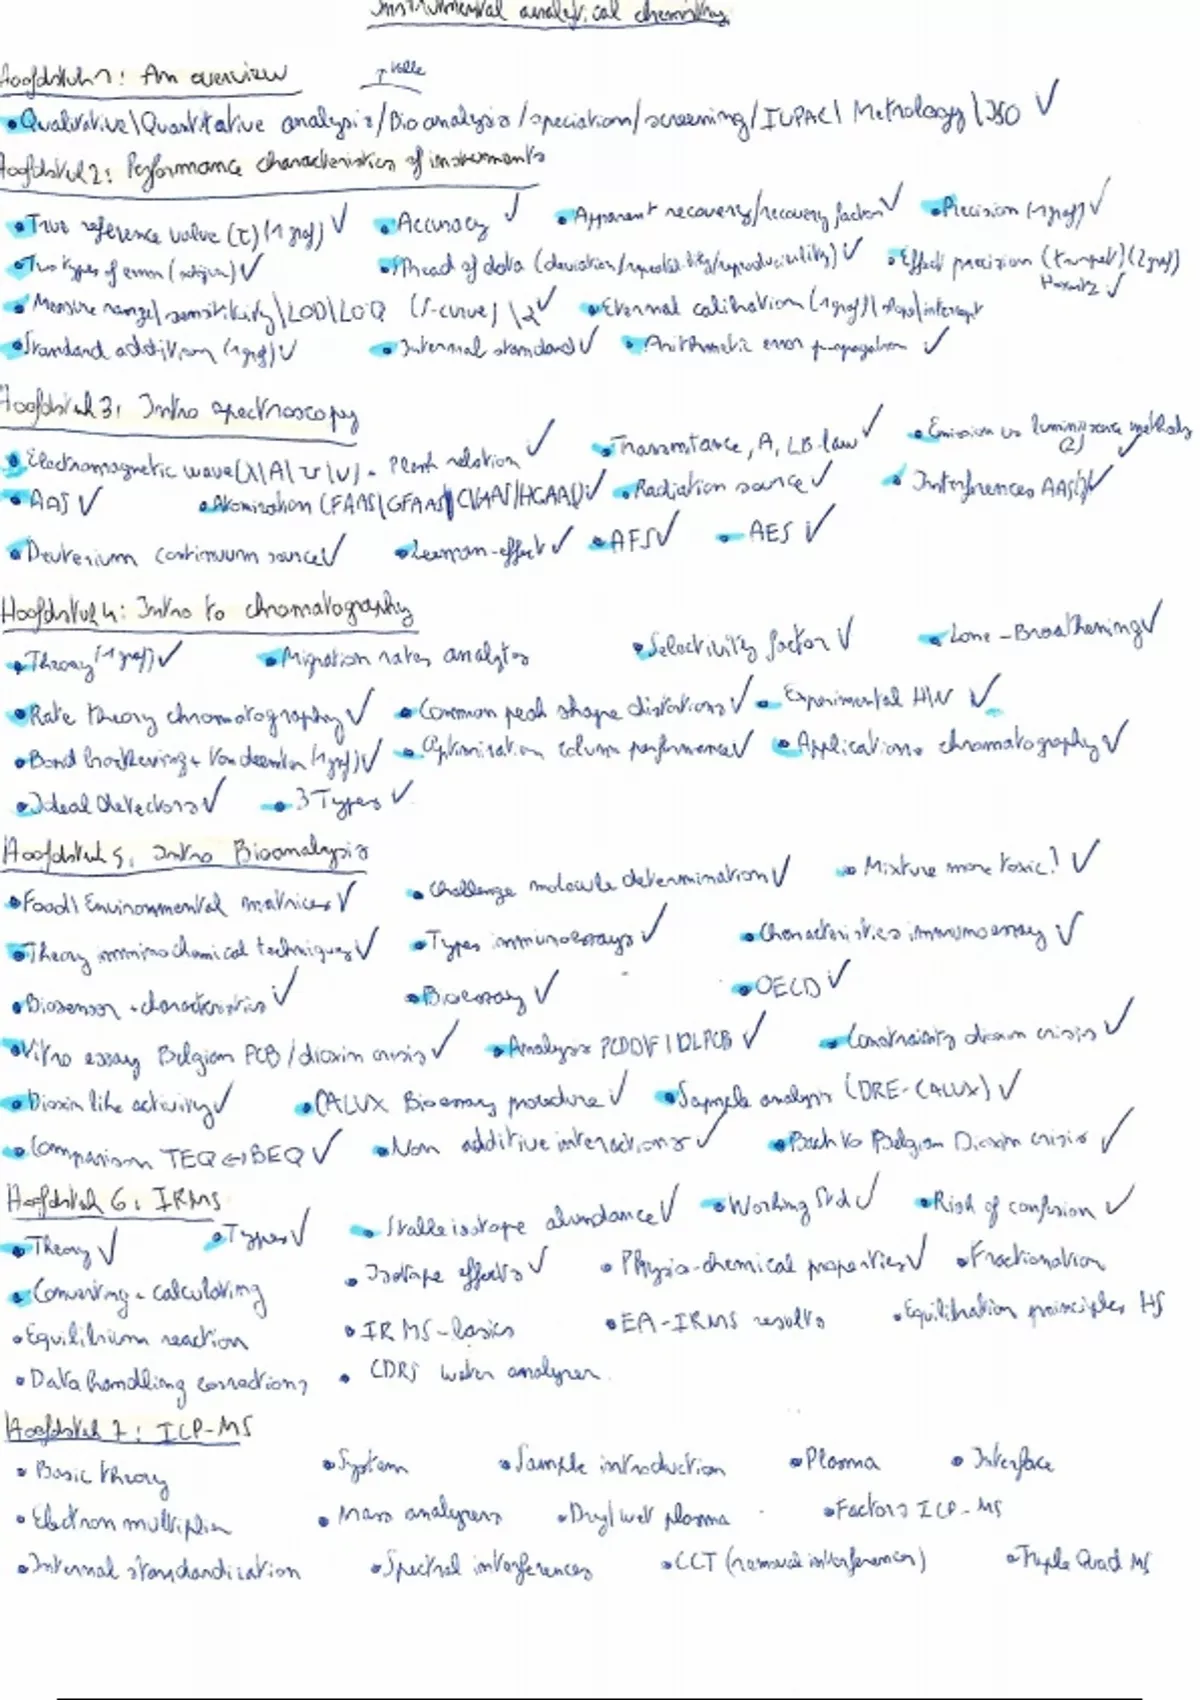 Instrumental analytical chemistry
Hoofdstuk 1: An overview
• Qualitative \ Quantitative analysis / Bioanalysis / speciation / screening / IUPAC \ Metrology \ ISO ✓
Hoofdstuk 2: Performance characteristics of instruments
• True reference value (τ) (1 graf) ✓ • Accuracy ✓ • Apparent recovery/recovery factor ✓ • Precision (1 graf) ✓
• Two types of error ✓ • Spread of data (deviation/repeatability/reproducibility) ✓ • Effect precision (trumpet) (2 graf)
Horwitz ✓
• Measure range \ sensitivity \ LOD \ LOQ (S-curve) ✓ • External calibration (1 graf) \ slope/intercept
• Standard addition (1 graf) ✓ • Internal standard ✓ • Arithmetic error propagation ✓
Hoofdstuk 3: Intro spectroscopy
• Electromagnetic wave - Planck relation ✓ • Transmitance, A, LB-law ✓ • Emission vs luminiscence methods (2) ✓
• AAS ✓ • Atomisation (FAAS \ GFAAS \ CVAAS \ HGAAS) ✓ • Radiation source ✓ • Interferences AAS ✓
• Deuterium continuum source ✓ • Zeeman-effect ✓ • AFS ✓ • AES ✓
Hoofdstuk 4: Intro to chromatography
• Theory (1 graf) ✓ • Migration rates analytes • Selectivity factor ✓ • Zone-Broathening ✓
• Rate theory chromatography ✓ • Common peak shape distortions ✓ • Experimental H/N ✓
• Band broadening + Van deemter (1 graf) ✓ • Optimisation column performance ✓ • Applications chromatography ✓
• Ideal Detectors ✓ • 3 Types ✓
Hoofdstuk 5: Intro Bioanalysis
• Food \ Environmental matrices ✓ • Challenge molecule determination ✓ • Mixture more toxic? ✓
• Theory immunochemical techniques ✓ • Types immunoassays ✓ • Characteristics immunoassay ✓
• Biosensor + characteristics ✓ • Bioassay ✓ • OECD ✓
• Vitro essay Belgian PCB / dioxin crisis ✓ • Analysis PCDD/F \ DLPCB ✓ • Constraints dioxin crisis ✓
• Dioxin like activity ✓ • CALUX Bioassay procedure ✓ • Sample analysis (DRE-CALUX) ✓
• Comparison TEQ ↔ BEQ ✓ • Non additive interactions ✓ • Back to Belgian Dioxin crisis ✓
Hoofdstuk 6: IRMS
• Theory ✓ • Types ✓ • Stable isotope abundance ✓ • Working Std ✓ • Risk of confusion ✓
• Converting + calculating • Isotope effects ✓ • Physio-chemical properties ✓ • Fractionation
• Equilibrium reaction • IRMS-basics • EA-IRMS results • Equilibration principles HS
• Data handling corrections • CDRS water analyser.
Hoofdstuk 7: ICP-MS
• Basic theory • System • Sample introduction • Plasma • Interface
• Electron multiplier • Mass analysers • Dry/wet plasma • Factors ICP-MS
• Internal standardisation • Spectral interferences • CCT (removal interferences) • Triple Quad MS